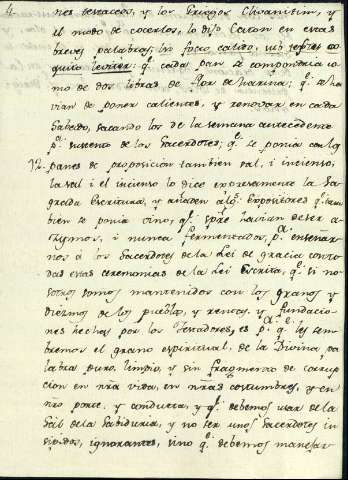 4
nes testaceos, y los Griegos Clivanitim, y
el modo de cocerlos, lo dijo Caton en estas
breves palabras, in foco caldo, sub testu co
quito leniter: q.e cada pan se compondria co
mo de dos libras de flor de harina; q.e se ha
vian de poner calientes, y renovar en cada
Sabado, sacando los de la semana antecedente
p.a sustento de los Sacerdotes; q.e se ponia con los
12. panes de proposicion tambien sal, i incienso,
la sal i el incienso lo dice expresamente la Sa
grada Escritura, y añaden alg.s Expositores q.e tam
bien se ponia vino, q.e spre havian de ser a
zymos, i nunca fermentados, p.a enseñar
nos á los Sacerdotes de la Lei de gracia con to
das estas ceremonias de la Lei Escrita, q.e si no
sotros somos mantenidos con los granos y
Diezmos de los pueblos, y rentas, y fundacio
nes hechas por los Fundadores, es p.a q.e les sem
bremos el grano espiritual de la Divina pa
labra puro, limpio, y sin fragmento de corrup
cion en nra vida, en nras costumbres, y en
nro porte y conducta, y q.e debemos usar de la
Sal de la Sabiduria, y no ser unos Sacerdotes in
sipidos, ignorantes, sino q.e debemos manejar